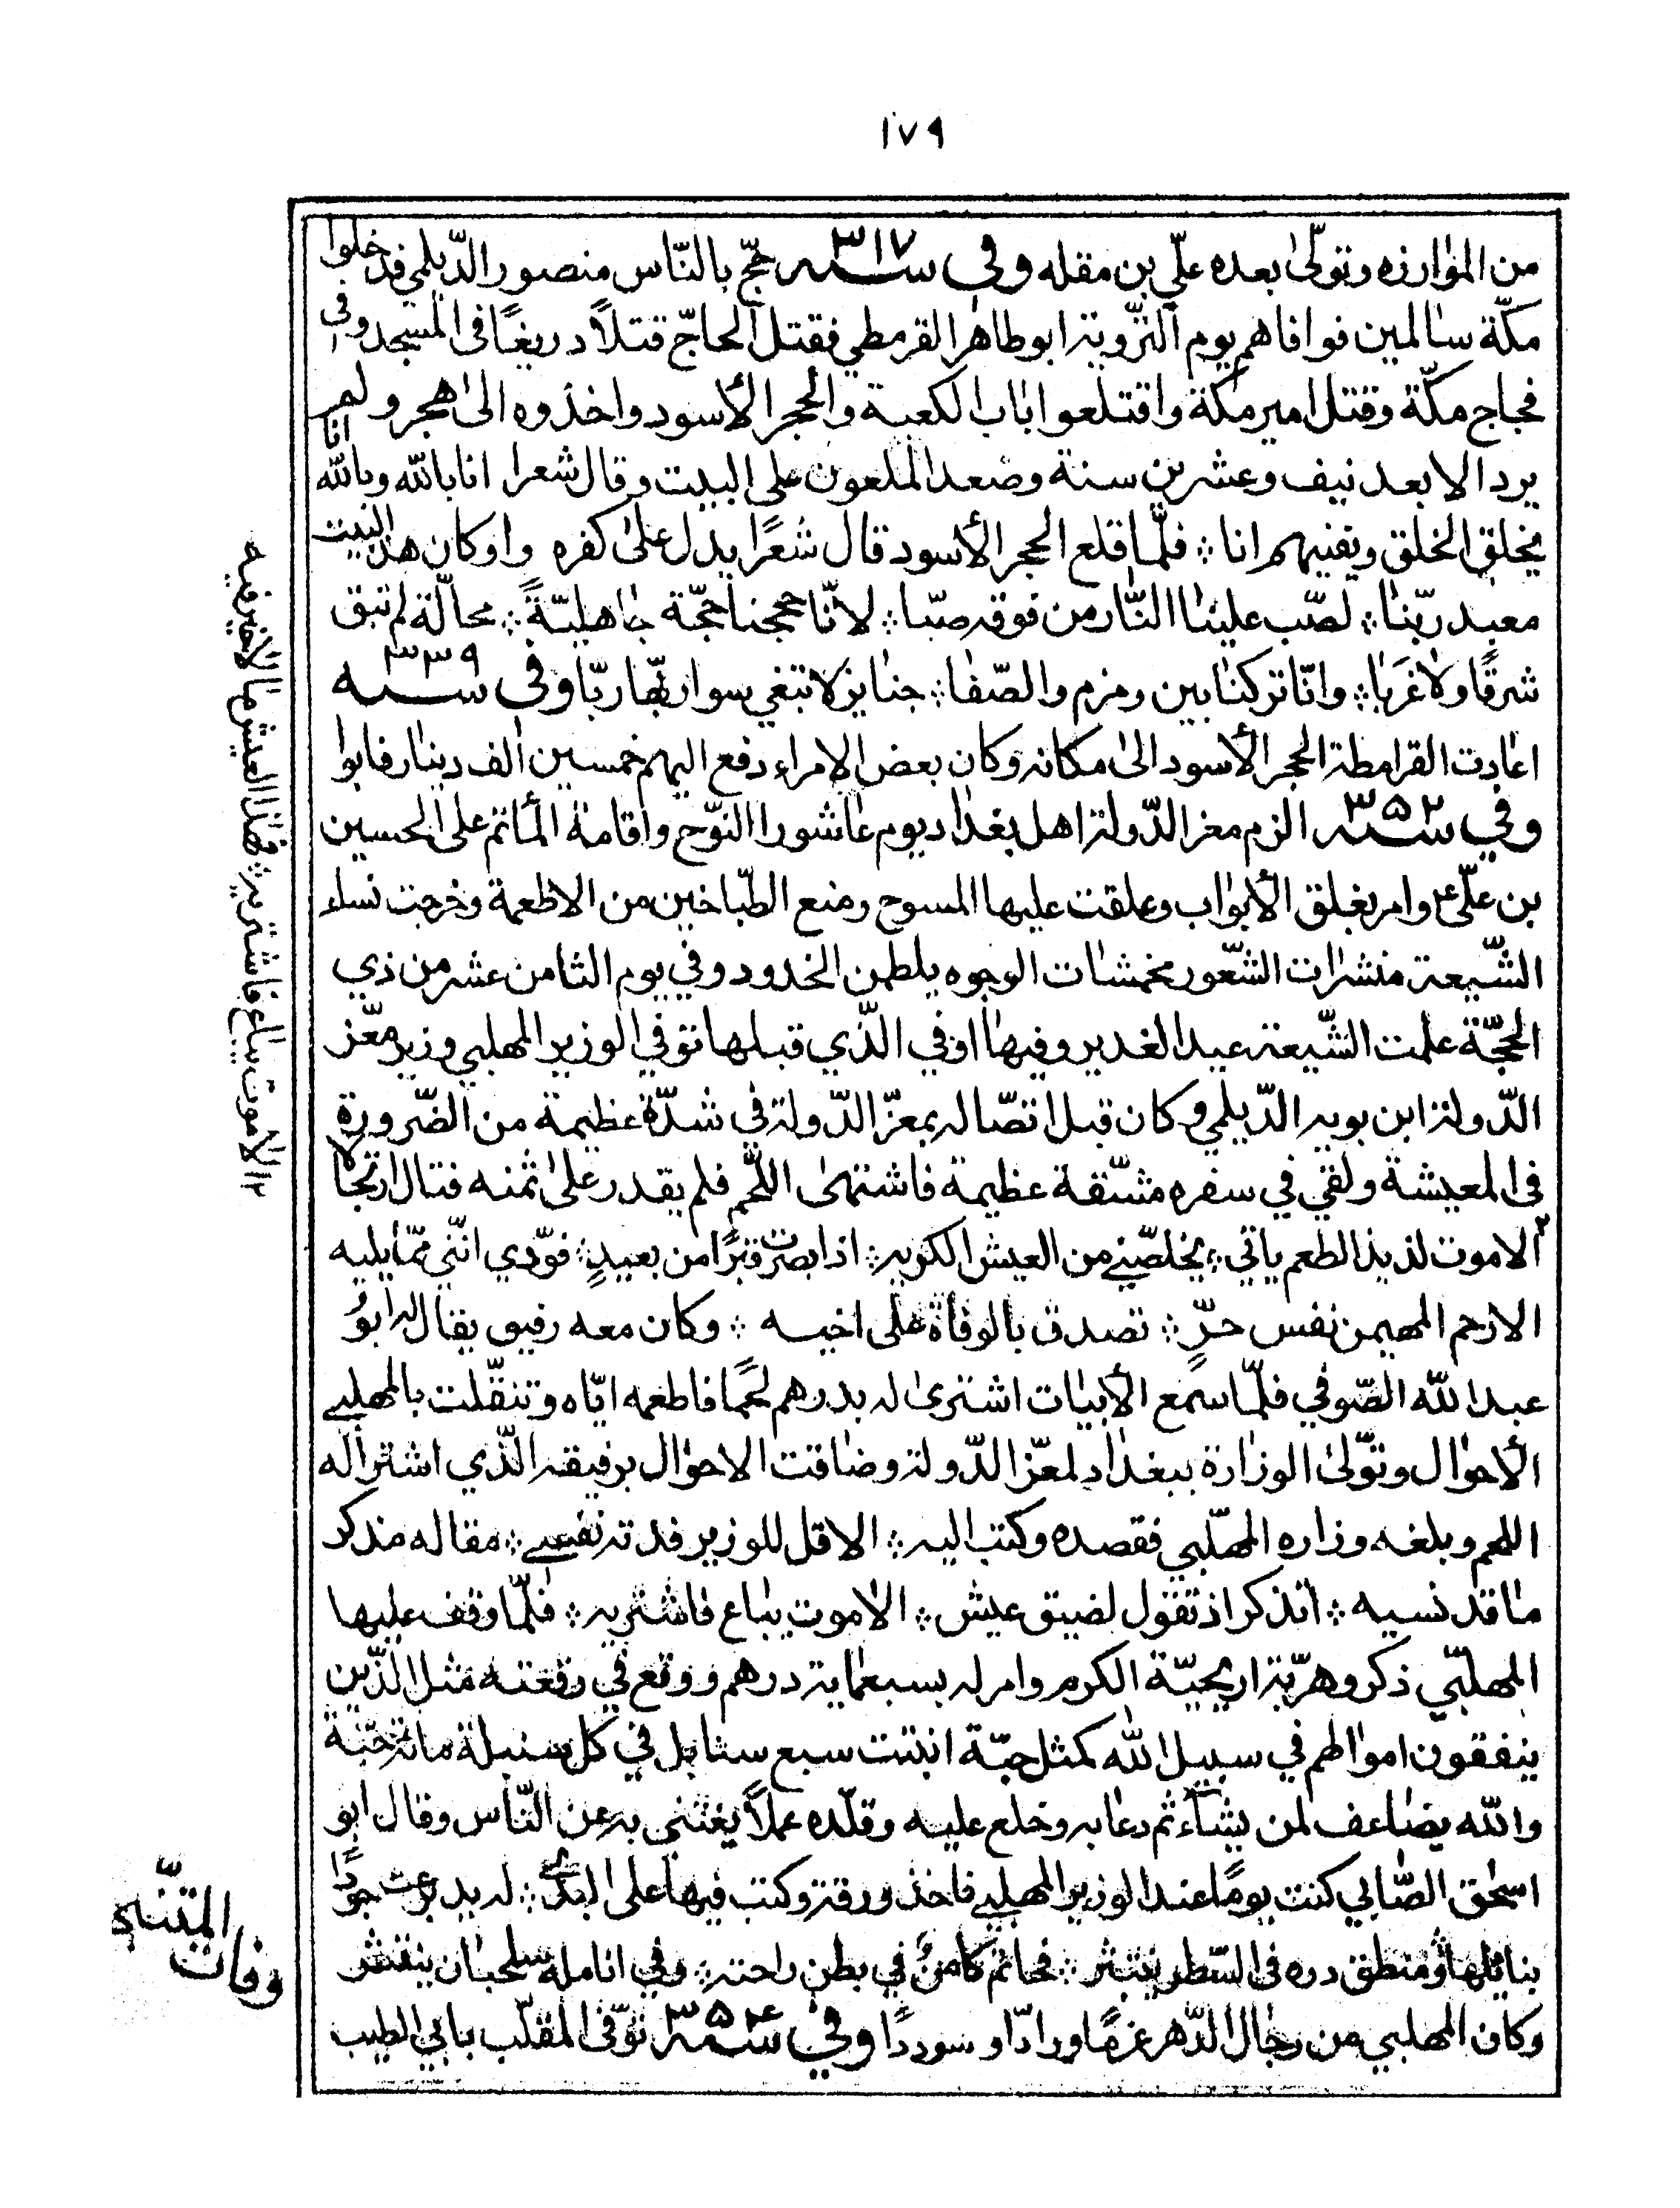 ١٧٩
من الموازره وتولّى بعده علّي بن مقله وفي سنه ٣١٧ حجّ بالنّاس منصور الدّيلمي فدخلوا
مكّة سالمين فوافاهم يوم التّروية ابوطاهر القرمطي فقتل الحاجّ قتلاً دريغًا في المسجد وفى
فجاج مكّة وقتل امير مكّة واقتلعوا باب الكعبة والحجر الأسود واخذوه الى هجر ولم
يرد الا بعد نيف وعشرين سنة وصعد الملعون على البيت وقال شعرا انا بالله وبالله انا
يخلق الخلق ويفنيهم انا ؞ فلمّا قلع الحجر الأسود قال شعرًا يدل على كفره واوكان هذا البيت
معبد ربّنا ؞ لصّب علينا النّار من فوقه صبّا ؞ لانّا حججنا حجّة جاهليّةً ؞ محالّة لم تبق
شرقًا ولا غربا ؞ وانّا تركنا بين زمزم والصّفا ؞ جنايز لا تبغي سوا ربّها ربّا وفى سنه ٣٣٩
اعادت القرامطة الحجر الأسود الى مكانه وكان بعض الامراء دفع اليهم خمسين الف دينار فابوا
وفي سنه ٣٥٢ الزم معز الدّولة اهل بغداد يوم عاشورا النوّح واقامة المأتم على الحسين
بن علّي ع وامر بغلق الأبواب وعلقت عليها المسوح ومنع الطبّاخين من الاطعمة وخرجت نساء
الشّيعة منشرات الشّعور مخمشات الوجوه يلطمن الخدود وفي يوم الثامن عشر من ذي
الحجّة علمت الشّيعة عيد الغدير وفيها اوفي الّذي قبلها توفي الوزير المهلبي وزير معّز
الدّولة ابن بويه الدّيلمي وكان قبل اتصّاله بمعزّ الدّولة في شدّة عظيمة من الضّرورة
فى المعيشة ولقي في سفره مشّقة عظيمة فاشتهى اللّحم فلم يقدر على ثمنه فقال ارتجالا
٢ الاموت لذيذ الطعم ياتي ؞ يخلصّني من العيش الكريه ؞ اذا بصرت قبرًا من بعيدٍ ؞ فوّدي انّني ممّا يليه
الارحم المهيمن نفس حرّ ؞ تصدق بالوفاة على اخيه ؞ وكان معه رفيق يقال له ابوُ
عبد الله الصّوفي فلمّا سمع الأبيات اشترى له بدرهم لحمًا فاطعمه ايّاه وتنقّلت بالمهلبي
الأحوال وتوّلى الوزارة ببغداد لمعزّ الدّولة وضاقت الاحوال برفيقه الّذي اشترا له
اللحم وبلغه وزاره المهلّبي فقصده وكتب اليه ؞ الا قل للوزير فدته نفسي ؞ مقاله مذكر
ما قد نسيه ؞ اتذكر اذ تقول لضيق عيش ؞ الاموت يباع فاشتريه ؞ فلمّا وقف عليها
المهلبّي ذكر وهزّته اريحيّة الكرم وامر له بسبعماية درهم ووقع في رقعته مثل الّذين
ينفقون اموالهم في سبيل الله كمثل حبّة انبتت سبع سنابل في كل سنبلة مائة حبّة
والله يضاعف لمن يشآء ثم دعا به وخلع عليه وقلّده عملاً يغتني به عن النّاس وقال ابو
اسحق الصّابي كنت يومًا عند الوزير المهلبي فاخذ ورقة وكتب فيها على البدي ؞ له يد برعت جودًا
بنائلها ومنطق دره فى السّطر ينتثر ؞ فحاتم كامن في بطن راحته ؞ وفي انامله سلحبان ينتشر
وكان المهلبي من رجال الدّهر عزمًا ورادّا وسوددًا وفي سنه ٣٥٤ توّفى الملقّب بابي الطيب
٢ الاموت يباع فاشتريه ؞ فهذا العيش ما لا خير فيه
وفات المتنبّي